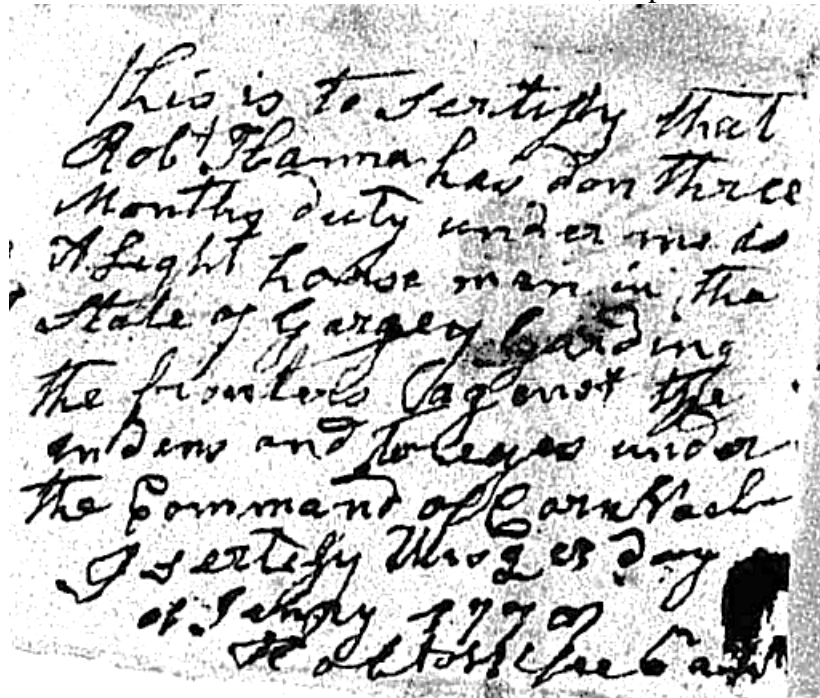 This is to Sertifty that
Robt. Hanna has don three
Months duty under me as
A Light horse man in the
State of Gargey Garding
the fronters (agenst the
indens and toreyes under
the Command of Corn
I sertefy this day
of Janry